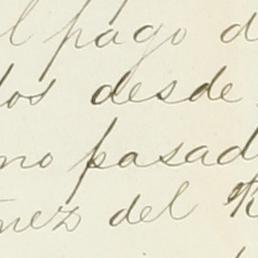 l pago d
los desde
no pasad
nez del R